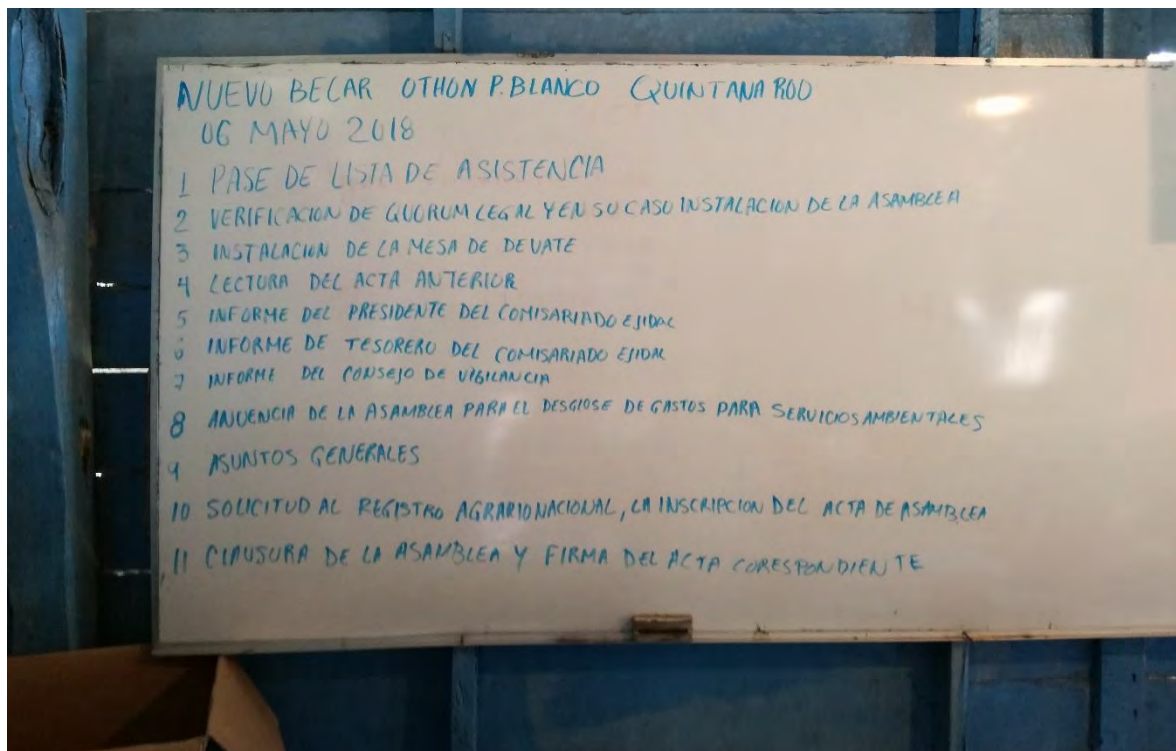 NUEVO BECAR OTHON P. BLANCO QUINTANA ROO
06 MAYO 2018
1 PASE DE LISTA DE ASISTENCIA
2 VERIFICACION DE QUORUM LEGAL Y EN SU CASO INSTALACION DE LA ASAMBLEA
3 INSTALACION DE LA MESA DE DEVATE
4 LECTURA DEL ACTA ANTERIOR
5 INFORME DEL PRESIDENTE DEL COMISARIADO EJIDAL
6 INFORME DE TESORERO DEL COMISARIADO EJIDAL
7 INFORME DEL CONSEJO DE VIGILANCIA
8 ANUENCIA DE LA ASAMBLEA PARA EL DESGLOSE DE GASTOS PARA SERVICIOS AMBIENTALES
9 ASUNTOS GENERALES
10 SOLICITUD AL REGISTRO AGRARIO NACIONAL, LA INSCRIPCION DEL ACTA DE ASAMBLEA
11 CLAUSURA DE LA ASAMBLEA Y FIRMA DEL ACTA CORESPONDIENTE